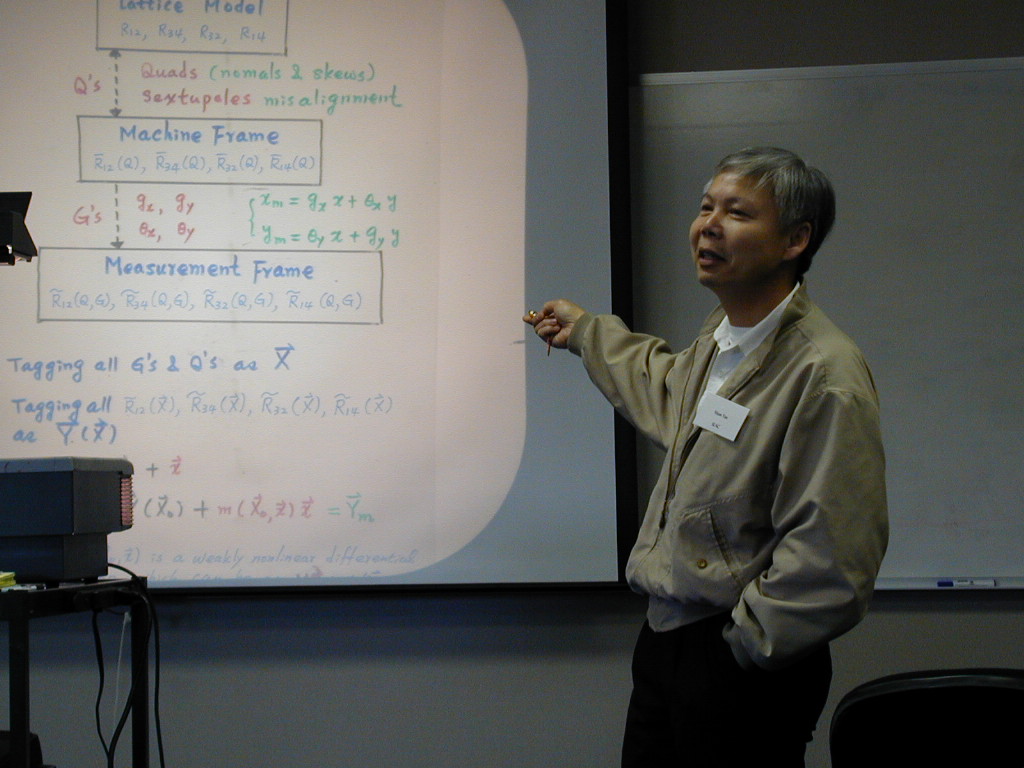 Lattice Model
R12, R34, R32, R14
Q's
Quads (nomals & skews)
sextupoles misalignment
Machine Frame
R̄12(Q), R̄34(Q), R̄32(Q), R̄14(Q)
G's
gx, gy
θx, θy
{ xm = gx x + θx y
ym = θy x + gy y
Measurement Frame
R̃12(Q,G), R̃34(Q,G), R̃32(Q,G), R̃14(Q,G)
Tagging all G's & Q's as X⃗
Tagging all R̃12(X⃗), R̃34(X⃗), R̃32(X⃗), R̃14(X⃗)
as Y⃗(X⃗)
+ z⃗
(X⃗0) + m(X⃗0,z⃗) z⃗ = Y⃗m
z⃗) is a weakly nonlinear differential